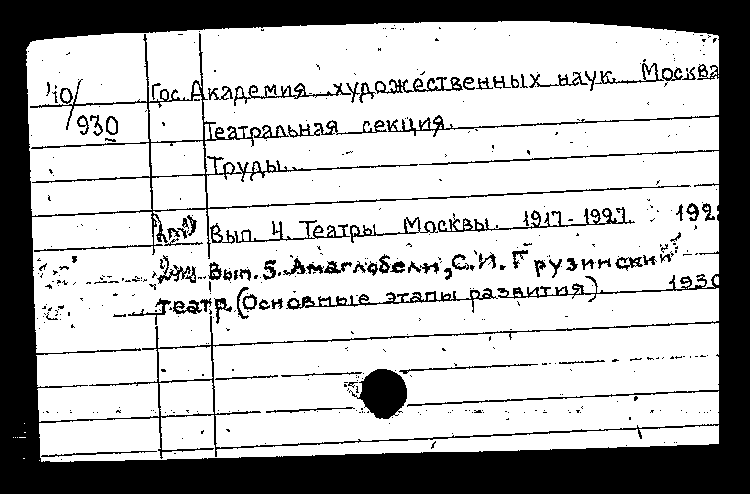 40/ Гос. Академия художественных наук. Москва
930 Театральная секция.
Труды.
Вып. 4. Театры Москвы. 1917-1927.
Вып. 5. Амаглобели, С.И. Грузинский
театр. (Основные этапы развития). 1930